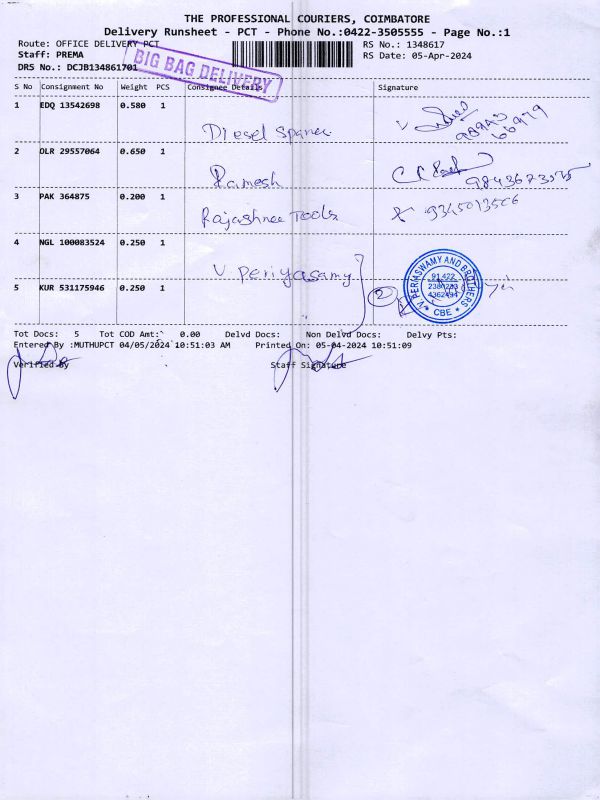 THE PROFESSIONAL COURIERS, COIMBATORE
Delivery Runsheet - PCT - Phone No.:0422-3505555 - Page No.:1
Route: OFFICE DELIVERY PCT
RS No.: 1348617
Staff: PREMA
RS Date: 05-Apr-2024
DRS No.: DCJB134861701
BIG BAG DELIVERY
S No Consignment No Weight PCS Consignee Details Signature
1 EDQ 13542698 0.580 1
Diesel Spares
2 DLR 29557064 0.650 1
Ramesh
3 PAK 364875 0.200 1
Rajashree Tools
4 NGL 100083524 0.250 1
V. Periyasamy
5 KUR 531175946 0.250 1
2
V. PERIASWAMY AND BROTHERS
CBE
Tot Docs: 5 Tot COD Amt: 0.00 Delvd Docs: Non Delvd Docs: Delvy Pts:
Entered By :MUTHUPCT 04/05/2024 10:51:03 AM Printed On: 05-04-2024 10:51:09
Verified By Staff Signature